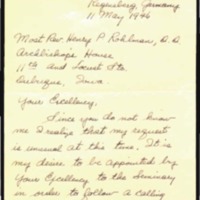 Regensburg, Germany
11 May 1946
Most Rev. Henry P. Rohlman, D.D.
Archbishop's House
11th and Locust Sts.
Dubuque, Iowa.
Your Excellency:
Since you do not know
me I realize that my request
is unusual at this time. It is
my desire to be appointed by
Your Excellency to the Seminary
in order to follow a calling